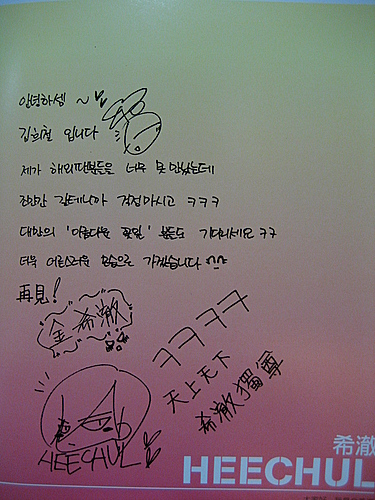 안녕하셈 ~
김희철 입니다
제가 해외팬분들을 너무 못 만났는데
잔만간 갈테니까 걱정마시고 ㅋㅋㅋ
대만의 '아름다운 꽃잎' 분들도 기다리세요 ㅋㅋ
더욱 어른스러운 모습으로 가겠습니다
再見!
金希澈
ㅋㅋㅋㅋ
天上天下
希澈獨尊
HEECHUL
希澈
HEECHUL